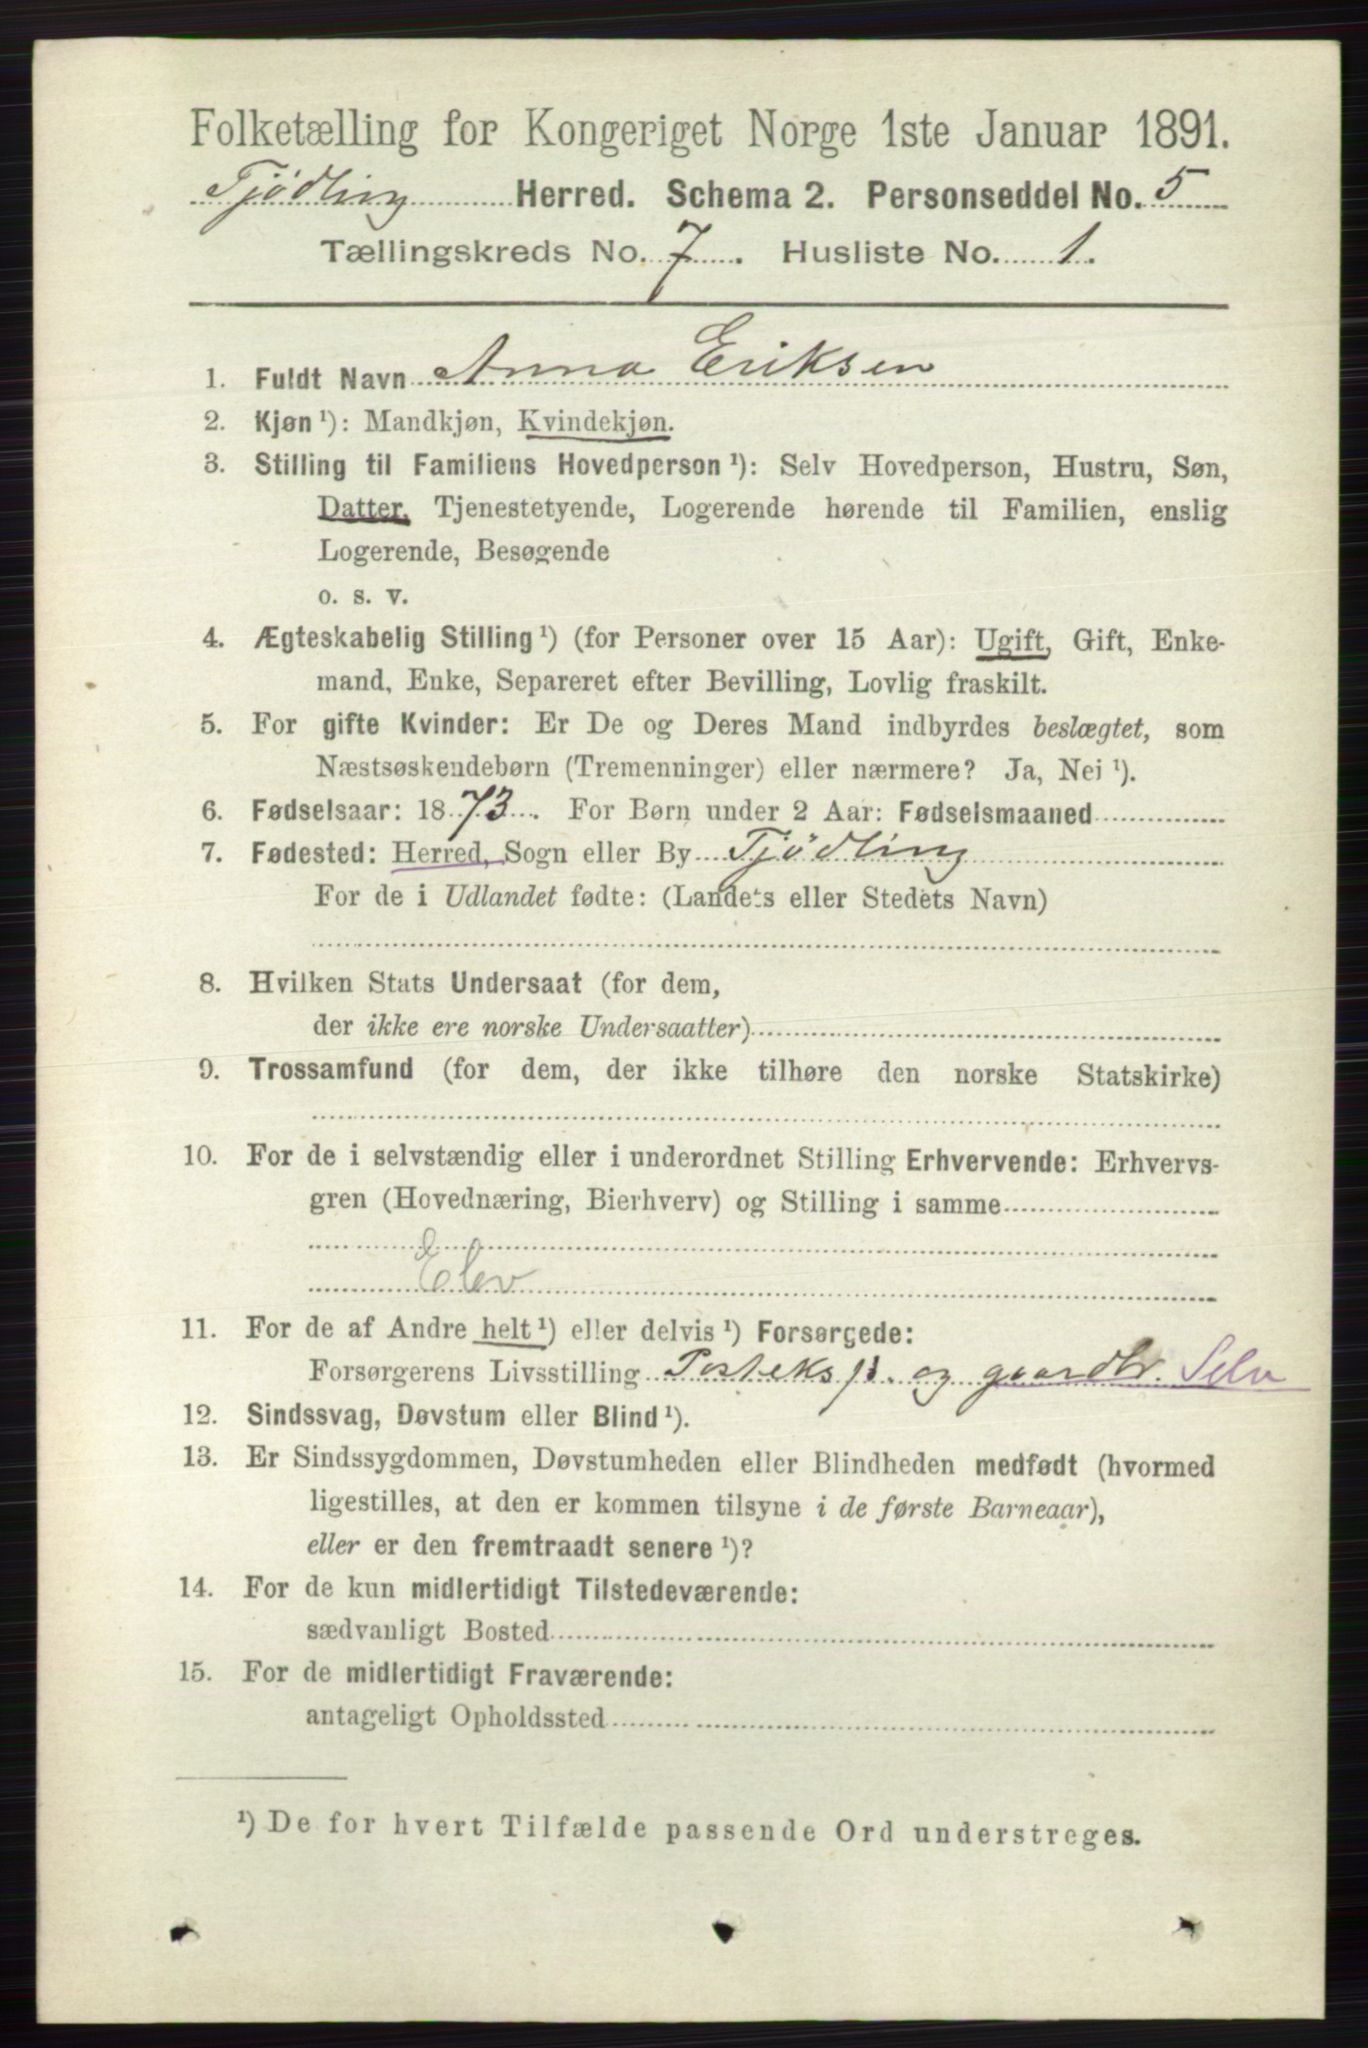 Folketælling for Kongeriget Norge 1ste Januar 1891.
Tjødling Herred. Schema 2. Personseddel No. 5
Tællingskreds No. 7. Husliste No. 1.
1. Fuldt Navn Anna Eriksen
2. Kjøn ¹): Mandkjøn, Kvindekjøn.
3. Stilling til Familiens Hovedperson ¹): Selv Hovedperson, Hustru, Søn,
Datter, Tjenestetyende, Logerende hørende til Familien, enslig
Logerende, Besøgende
o. s. v.
4. Ægteskabelig Stilling ¹) (for Personer over 15 Aar): Ugift, Gift, Enke-
mand, Enke, Separeret efter Bevilling, Lovlig fraskilt.
5. For gifte Kvinder: Er De og Deres Mand indbyrdes beslægtet, som
Næstsøskendebørn (Tremenninger) eller nærmere? Ja, Nei ¹).
6. Fødselsaar: 1873. For Børn under 2 Aar: Fødselsmaaned
7. Fødested: Herred, Sogn eller By Tjödling
For de i Udlandet fødte: (Landets eller Stedets Navn)
8. Hvilken Stats Undersaat (for dem,
der ikke ere norske Undersaatter)
9. Trossamfund (for dem, der ikke tilhøre den norske Statskirke)
10. For de i selvstændig eller i underordnet Stilling Erhvervende: Erhvervs-
gren (Hovednæring, Bierhverv) og Stilling i samme
Elev
11. For de af Andre helt ¹) eller delvis ¹) Forsørgede:
Forsørgerens Livsstilling Posteksp. og gaardbr. Selv
12. Sindssvag, Døvstum eller Blind ¹).
13. Er Sindssygdommen, Døvstumheden eller Blindheden medfødt (hvormed
ligestilles, at den er kommen tilsyne i de første Barneaar),
eller er den fremtraadt senere ¹)?
14. For de kun midlertidigt Tilstedeværende:
sædvanligt Bosted
15. For de midlertidigt Fraværende:
antageligt Opholdssted
¹) De for hvert Tilfælde passende Ord understreges.